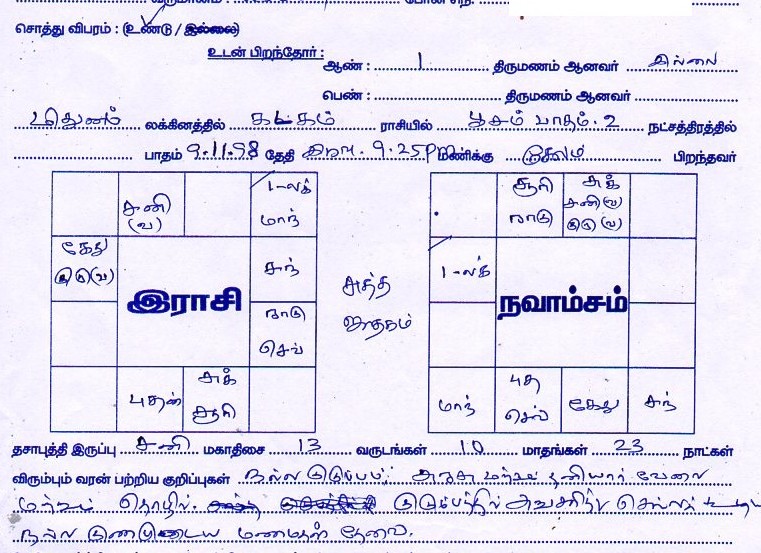 வருமானம் :
சொத்து விபரம் : (உண்டு / இல்லை)
உடன் பிறந்தோர் :
ஆண் : 1 திருமணம் ஆனவர் இல்லை
பெண் : திருமணம் ஆனவர்
மிதுனம் லக்கினத்தில் கடகம் ராசியில் பூசம் பாதம். 2 நட்சத்திரத்தில்
பாதம் 9.11.98 தேதி இரவு. 9.25PM மணிக்கு பிறந்தவர்
சனி (வ) 1-லக் மாந்
கேது குரு(வ) சந்
ராகு செவ்
புதன் சுக் சூரி
இராசி
சூரி ராகு சுக் சனி(வ) குரு(வ)
1-லக்
மாந் புத செவ் கேது சந்
நவாம்சம்
ஜாதகம்
தசாபுத்தி இருப்பு சனி மகாதிசை 13 வருடங்கள் 10 மாதங்கள் 23 நாட்கள்
விரும்பும் வரன் பற்றிய குறிப்புகள் நல்ல குடும்பம். அரசு மற்றும் தனியார் வேலை
மற்றும் தொழில். குடும்பத்தில் அனுசரித்து செல்லக் கூடிய
நல்ல குணமுடைய மணமகன் தேவை.